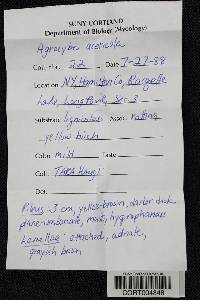 SUNY CORTLAND
Department of Biology (Mycology)
Agrocybe
Col. No. 22 Date 7-27-88
Location NY, Hamilton Co,
Lake, Long Point,
Substrate Lignicolous Assoc. rotting
yellow birch
Odor mild
Col.
Det.
Pileus ~3 cm, yellow-brown, darker disk
plane-umbonate, moist, hygrophanous
Lamellae: attached, adnate,
grayish brown
CORT004348